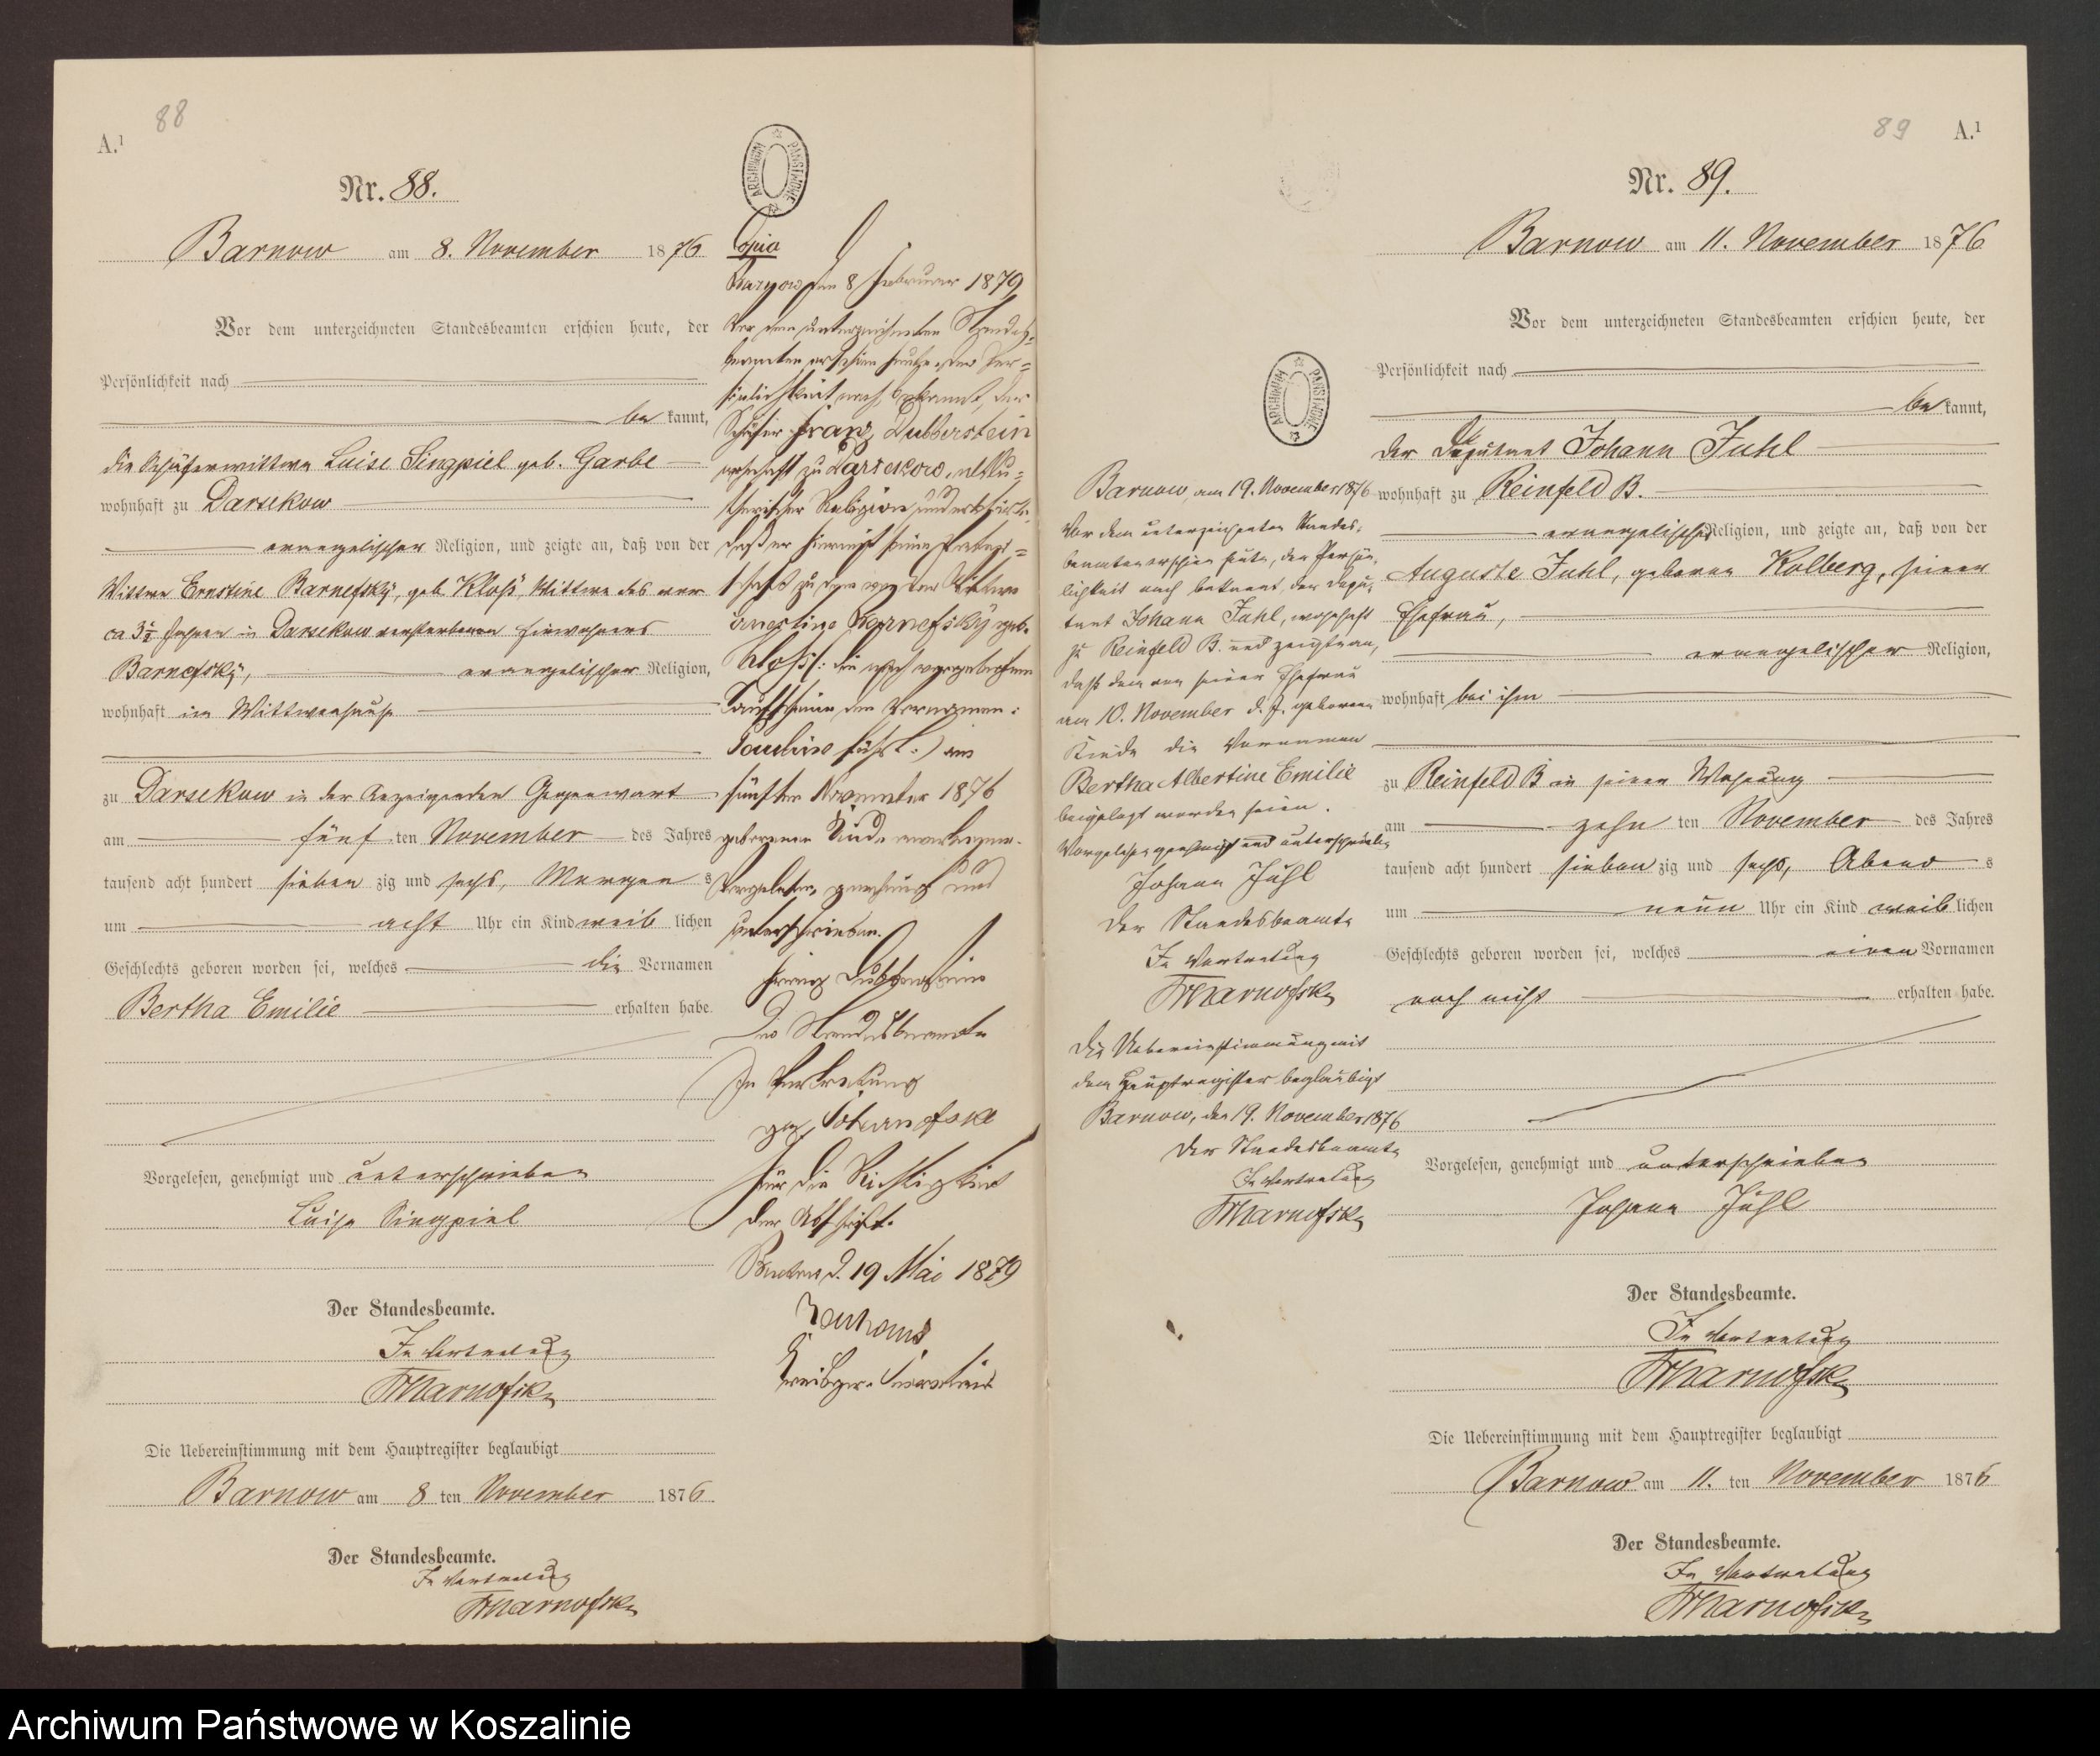 88
A.¹
Nr. 88.
Barnow am 8. November 1876
Vor dem unterzeichneten Standesbeamten erschien heute, der
Persönlichkeit nach
be kannt,
die Schäferwittwe Luise Singpiel geb. Garbe
wohnhaft zu Darsekow
evangelischer Religion, und zeigte an, daß von der
Wittwe Ernstine Barnefsky, geb. Kloß, Wittwe des vor
ca 3½ Jahren in Darsekow verstorbenen Einwohners
Barnefsky, evangelischer Religion,
wohnhaft im Wittwenhause
zu Darsekow in der Anzeigenden Gegenwart
am fünf ten November des Jahres
tausend acht hundert sieben zig und sechs, Morgen s
um acht Uhr ein Kind weib lichen
Geschlechts geboren worden sei, welches die Vornamen
Bertha Emilie erhalten habe.
Vorgelesen, genehmigt und unterschrieben
Luise Singpiel
Der Standesbeamte.
In Vertretung
Die Uebereinstimmung mit dem Hauptregister beglaubigt
Barnow am 8 ten November 1876.
Der Standesbeamte.
In Vertretung
ARCHIWUM PAŃSTWOWE
Copia
Barnow den 8 Februar 1879
Vor dem unterzeichneten Standes-
beamten erschien heute, der Per-
sönlichkeit nach bekannt, der
Schäfer Franz Dubberstein
wohnhaft zu Darsekow, alt lu-
therischer Religion und erklärte,
daß er hiermit seine Vater-
schaft zu dem von der Wittwe
Ernestine Barnefsky geb.
Kloß (: die nach vorgelegtem
Taufscheine den Vornamen:
führt :) am
fünften November 1876
geborenen Kinde anerkenne.
Vorgelesen, genehmigt und
unterschrieben.
Franz Dubberstein
Der Standesbeamte
In Vertretung
gez.
Für die Richtigkeit
der Abschrift.
d. 19 Mai 1879
89 A.¹
Nr. 89.
Barnow am 11. November 1876
Vor dem unterzeichneten Standesbeamten erschien heute, der
Persönlichkeit nach
be kannt,
der Deputant Johann Juhl
wohnhaft zu Reinfeld B.
evangelischer Religion, und zeigte an, daß von der
Auguste Juhl, geborene Kolberg, seiner
Ehefrau,
evangelischer Religion,
wohnhaft bei ihm
zu Reinfeld B in seiner Wohnung
am zehn ten November des Jahres
tausend acht hundert sieben zig und sechs, Abend s
um neun Uhr ein Kind weib lichen
Geschlechts geboren worden sei, welches einen Vornamen
noch nicht erhalten habe.
Vorgelesen, genehmigt und unterschrieben
Johann Juhl
Der Standesbeamte.
In Vertretung
Die Uebereinstimmung mit dem Hauptregister beglaubigt
Barnow am 11. ten November 1876
Der Standesbeamte.
In Vertretung
ARCHIWUM PAŃSTWOWE
Barnow, am 19. November 1876
Vor dem unterzeichneten Standes-
beamten erschien heute, der Persön-
lichkeit nach bekannt, der Depu-
tant Johann Juhl, wohnhaft
zu Reinfeld B. und zeigte an,
daß dem von seiner Ehefrau
am 10. November d. J. geborenen
Kinde die Vornamen
Bertha Albertine Emilie
beigelegt worden seien.
Vorgelesen genehmigt und unterschrieben
Johann Juhl
Der Standesbeamte
In Vertretung
Die Uebereinstimmung mit
dem Hauptregister beglaubigt
Barnow, den 19. November 1876
Der Standesbeamte
In Vertretung
Archiwum Państwowe w Koszalinie